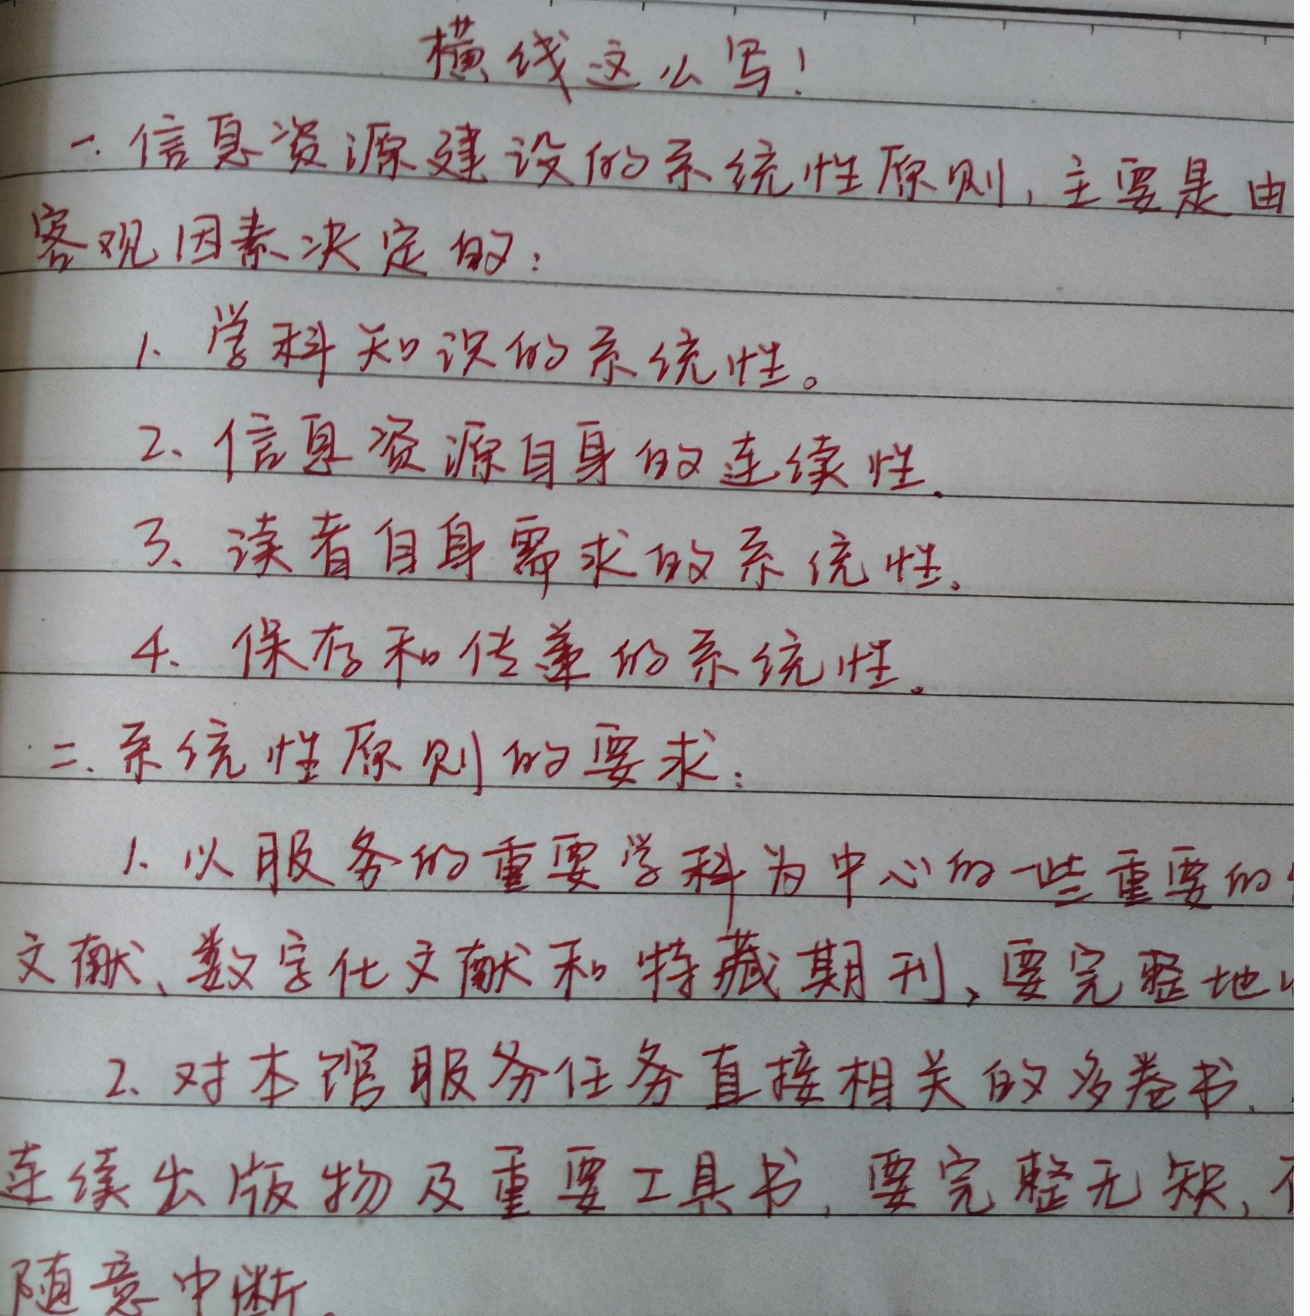 横线这么写！
一.信息资源建设的系统性原则，主要是由
客观因素决定的：
1.学科知识的系统性。
2、信息资源自身的连续性.
3、读者自身需求的系统性.
4、保存和传递的系统性.
二.系统性原则的要求：
1.以服务的重要学科为中心的一些重要的
文献、数字化文献和特藏期刊，要完整地
2.对本馆服务任务直接相关的多卷书.
连续出版物及重要工具书，要完整无缺，
随意中断。